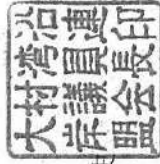 大村湾沿
岸議員連
盟会長印